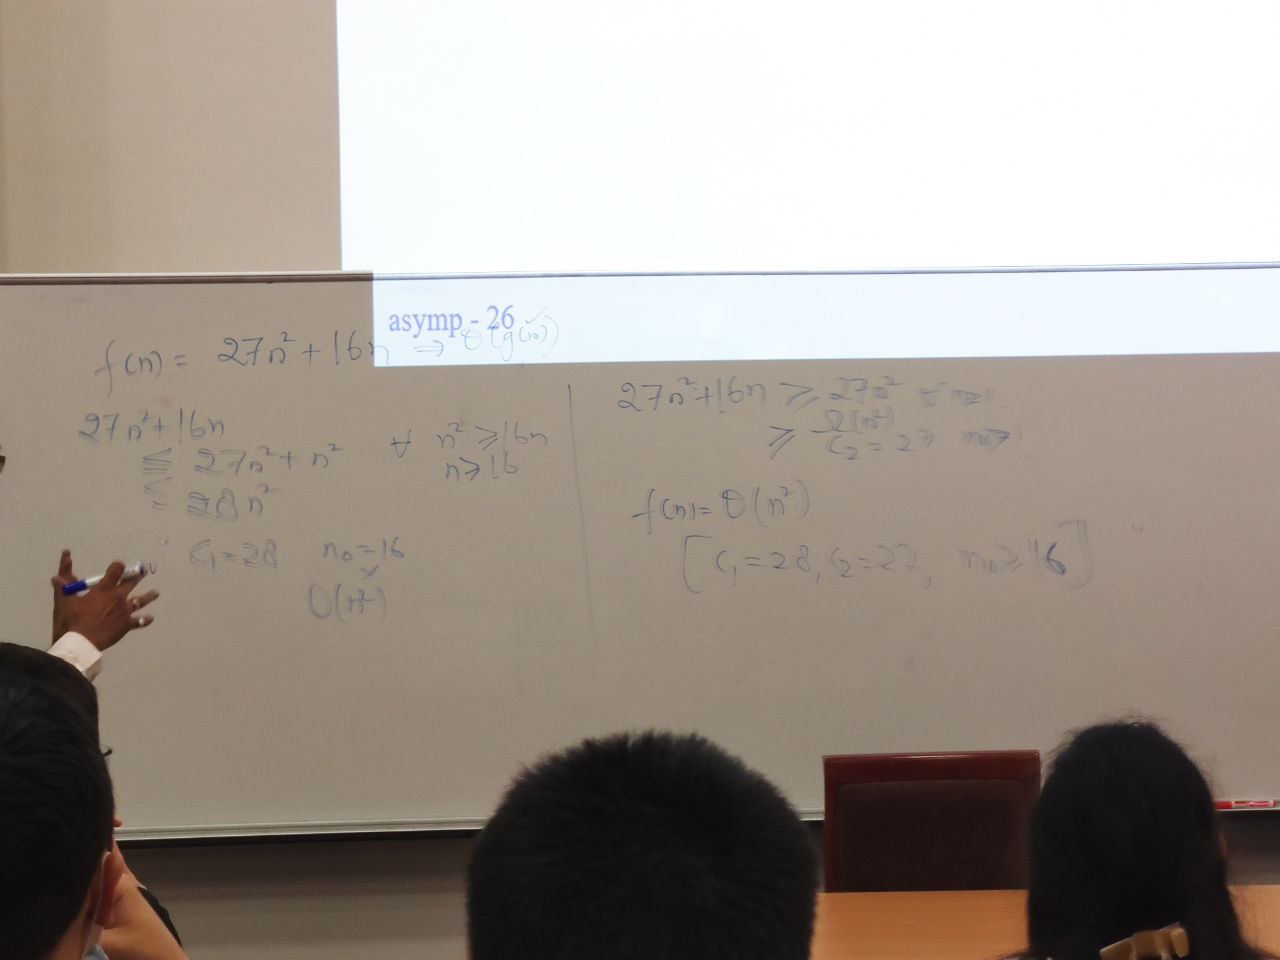 asymp - 26
f(n) = 27n² + 16n ⇒ Θ(g(n))
27n² + 16n
≤ 27n² + n² ∀ n² ≥ 16n
n ≥ 16
≤ 28n²
C₁ = 28 n₀ = 16
O(n²)
27n² + 16n ≥ 27n²
≥ Ω(n²)
C₂ = 27
f(n) = Θ(n²)
[C₁ = 28, C₂ = 27, n₀ ≥ 16]